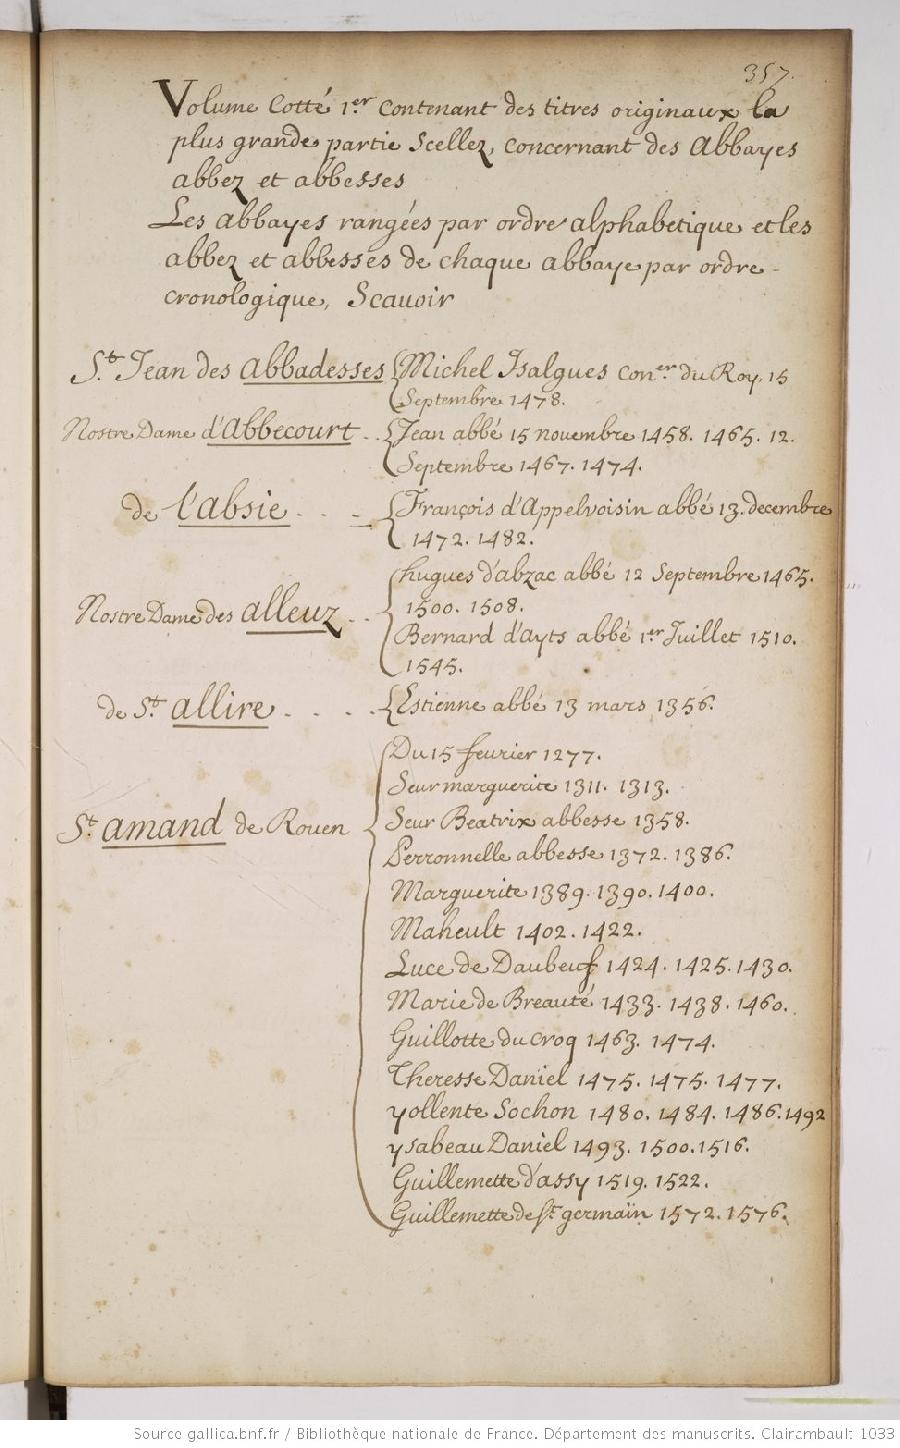 357.
Volume Cotté 1.er contenant des titres originaux la
plus grande partie Scellez, concernant des Abbayes
abbez et abbesses
Les abbayes rangées par ordre alphabetique et les
abbez et abbesses de chaque abbaye par ordre
cronologique, Scauoir
S.t Jean des Abbadesses { Michel Isalgues con.er du Roy, 15
Septembre 1478.
Nostre Dame d'Abbecourt .. { Jean abbé 15 novembre 1458. 1465. 12.
Septembre 1467. 1474.
de l'absie . . . { François d'Appelvoisin abbé 13. decembre
1472. 1482.
Nostre Dame des alleuz .. { hugues d'abzac abbé 12 Septembre 1465.
1500. 1508.
Bernard d'Ayts abbé 1.er Juillet 1510.
1545.
de S.t allire . . . . { Estienne abbé 13 mars 1356.
S.t amand de Rouen { Du 15 feurier 1277.
Seur marguerite 1311. 1313.
Seur Beatrix abbesse 1358.
Perronnelle abbesse 1372. 1386.
Marguerite 1389. 1390. 1400.
Maheult 1402. 1422.
Luce de Daubeuf 1424. 1425. 1430.
Marie de Breauté 1433. 1438. 1460.
Guillotte du croq 1463. 1474.
Theresse Daniel 1475. 1475. 1477.
yollente Sochon 1480. 1484. 1486. 1492
ysabeau Daniel 1493. 1500. 1516.
Guillemette d'assy 1519. 1522.
Guillemette de st germaïn 1572. 1576.
Source gallica.bnf.fr / Bibliothèque nationale de France. Département des manuscrits. Clairambault 1033